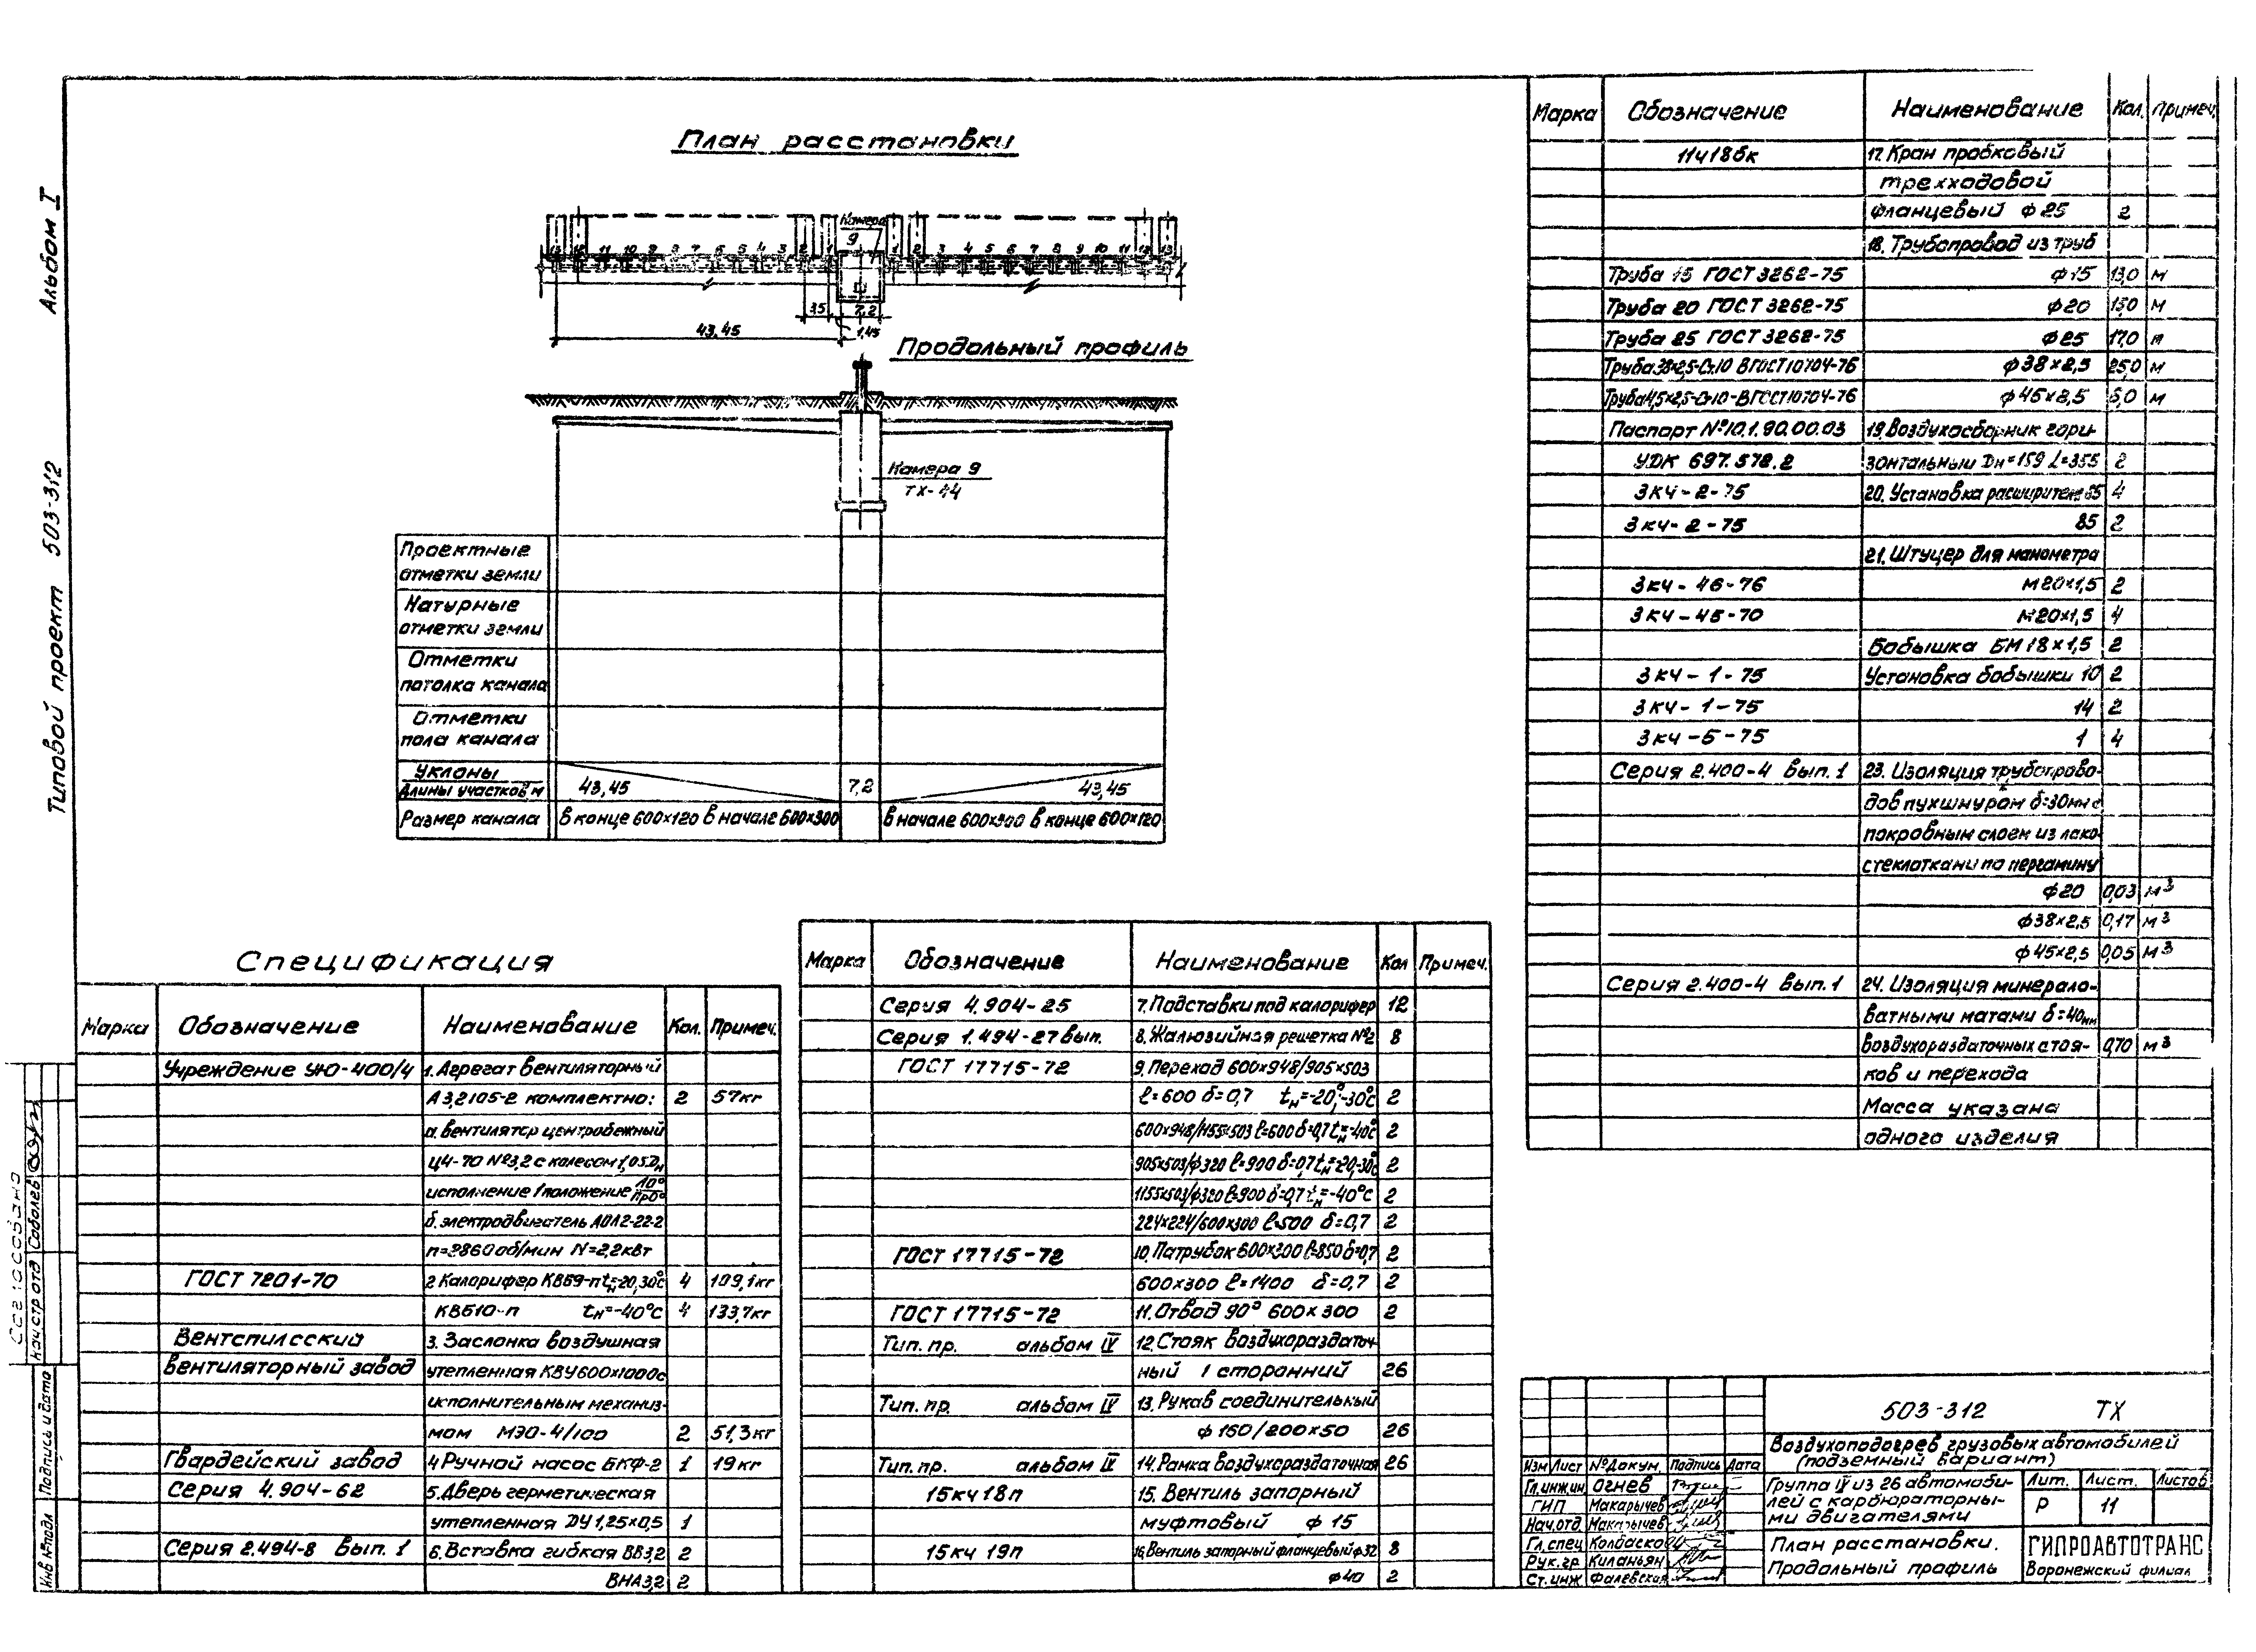 Альбом I
Типовой проект 503-312
План расстановки
Камера
9
13 12 11 10 9 8 7 6 5 4 3 2 1
1 2 3 4 5 6 7 8 9 10 11 12 13
3,5 7,2
43,45 1,45
Продольный профиль
Камера 9
ТХ-44
Проектные
отметки земли
Натурные
отметки земли
Отметки
потолка канала
Отметки
пола канала
Уклоны
Длины участков м 43,45 7,2 43,45
Размер канала в конце 600×120 в начале 600×300 в начале 600×300 в конце 600×120
Спецификация
Марка Обозначение Наименование Кол. Примеч.
Учреждение УЮ-400/4 1. Агрегат вентиляторный
А3,2105-2 комплектно: 2 57кг
а. вентилятор центробежный
Ц4-70 №3,2 с колесом 1,05Dн
исполнение 1 положение Пр0°
б. электродвигатель АОЛ2-22-2
n=2860 об/мин N=2,2квт
ГОСТ 7201-70 2 Калорифер КВБ9-п tн=-20,30°с 4 109,1кг
КВБ10-п tн=-40°С 4 133,7кг
Вентспилсский 3. Заслонка воздушная
вентиляторный завод утепленная КВУ600×1000с
исполнительным механиз-
мом МЭО-4/100 2 51,3кг
Гвардейский завод 4 Ручной насос БКФ-2 1 19кг
Серия 4.904-62 5. Дверь герметическая
утепленная ДУ 1,25×0,5 1
Серия 2.494-8 вып. 1 6. Вставка гибкая ВВ3,2 2
ВНА3,2 2
Марка Обозначение Наименование Кол Примеч.
Серия 4.904-25 7. Подставки под калорифер 12
Серия 1.494-27 вып. 8. Жалюзийная решетка №2 8
ГОСТ 17715-72 9. Переход 600×948/905×503
ℓ=600 δ=0,7 tн=-20,-30°с 2
600×948/1155×503 ℓ=600 δ=0,7 tн=-40°с 2
905×503/ф320 ℓ=900 δ=0,7 tн=-20,-30°с 2
1155×503/ф320 ℓ=900 δ=0,7 tн=-40°С 2
224×224/600×300 ℓ=500 δ=0,7 2
ГОСТ 17715-72 10. Патрубок 600×300 ℓ=850 δ=0,7 2
600×300 ℓ=1400 δ=0,7 2
ГОСТ 17715-72 11. Отвод 90° 600×300 2
Тип. пр. альбом IV 12. Стояк воздухораздаточ-
ный 1 сторонний 26
Тип. пр. альбом IV 13. Рукав соединительный
ф 160/200×50 26
Тип. пр. альбом IV 14. Рамка воздухораздаточная 26
15кч 18п 15. Вентиль запорный
муфтовый ф 15
15кч 19п 16. Вентиль запорный фланцевый ф32 8
ф40 2
Марка Обозначение Наименование Кол. Примеч.
11ч18бк 17. Кран пробковый
трехходовой
фланцевый ф 25 2
18. Трубопровод из труб
Труба 15 ГОСТ 3262-75 ф15 13,0 м
Труба 20 ГОСТ 3262-75 ф20 м
Труба 25 ГОСТ 3262-75 ф25 17,0 м
Труба 38×2,5-Ст.10 В ГОСТ 10704-76 ф38×2,5 25,0 м
ф45×2,5 м
Паспорт №10.1.90.00.03 19. Воздухосборник гори-
УДК 697.578.2 зонтальный Dн=159 L=355 2
3КЧ-2-75 20. Установка расширителя 4
3КЧ-2-75 85 2
21. Штуцер для манометра
3КЧ-46-76 М20×1,5 2
3КЧ-45-70 М20×1,5 4
Бобышка БМ18×1,5 2
3КЧ-1-75 Установка бобышки 10 2
3КЧ-1-75 14 2
3КЧ-5-75 1 4
Серия 2.400-4 вып. 1 23. Изоляция трубопрово-
дов пухшнуром δ=30мм с
покровным слоем из лако-
стеклоткани по пергамину
ф20 0,03 м³
ф38×2,5 0,17 м³
ф45×2,5 0,05 м³
Серия 2.400-4 вып. 1 24. Изоляция минерало-
ватными матами δ=40мм
воздухораздаточных стоя- 0,70 м³
ков и перехода
Масса указана
одного изделия
503-312 ТХ
Воздухоподогрев грузовых автомобилей
(подземный вариант)
Изм Лист №Докум. Подпись Дата
Гл.инжин Огнев
ГИП Макарычев
Нач.отд. Макарычев
Гл.спец Колдаско
Рук.гр. Киланьян
Ст.инж Фалевская
Группа IV из 26 автомоби-
лей с карбюраторны-
ми двигателями
Лит. Лист. Листов
Р 11
План расстановки.
Продольный профиль
ГИПРОАВТОТРАНС
Воронежский филиал
Согласовано
Нач.стр отд Соболев
Подпись и дата
Инв №подл